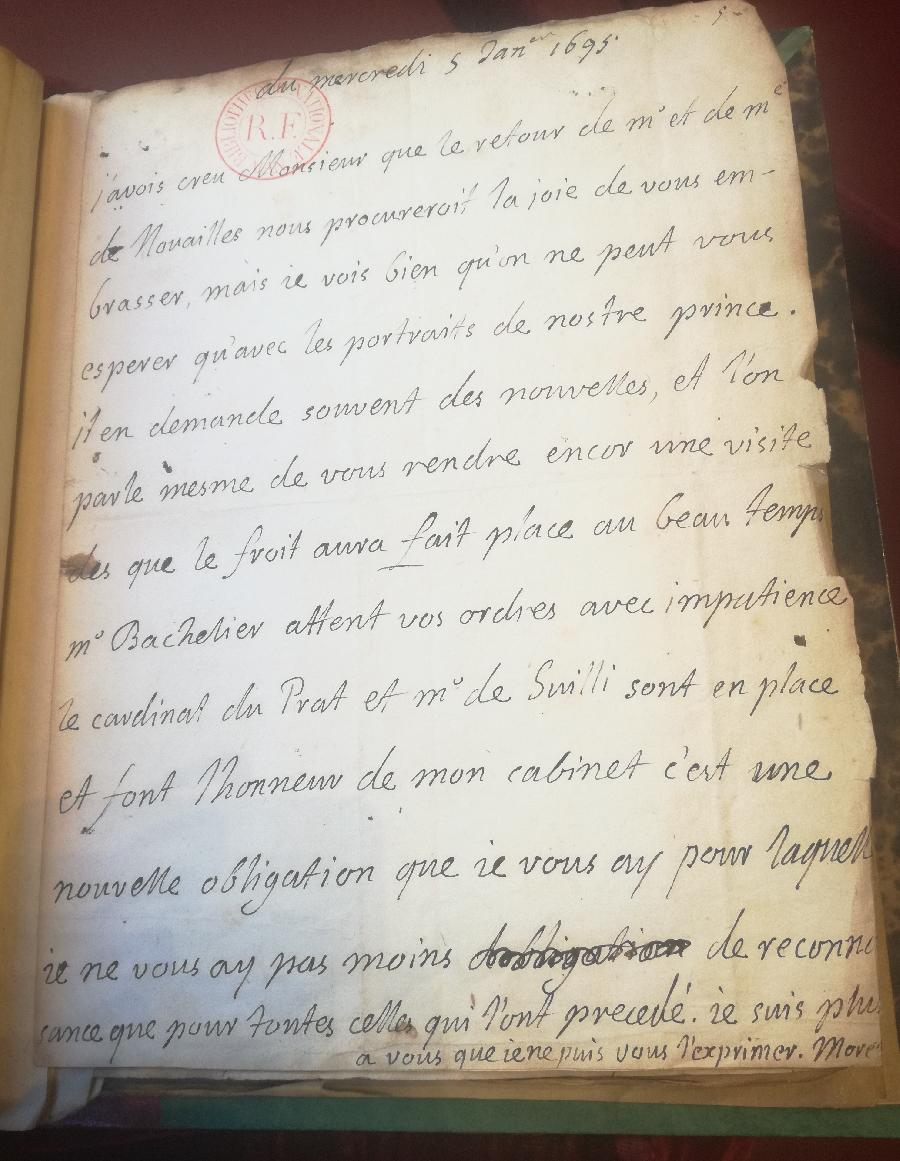 5
du mercredi 5 Janer 1695
BIBLIOTHEQUE NATIONALE R.F.
j'avois creu Monsieur que le retour de mr et de me
de Nouailles nous procureroit la joie de vous em-
brasser, mais ie vois bien qu'on ne peut vous
esperer qu'avec les portraits de nostre prince.
il en demande souvent des nouvelles, et l'on
parle mesme de vous rendre encor une visite
des que le froit aura fait place au beau temps
mr Bachelier attent vos ordres avec impatience
le cardinal du Prat et mr de Suilli sont en place
et font l'honneur de mon cabinet c'est une
nouvelle obligation que ie vous ay pour laquell
ie ne vous ay pas moins d'obligation de reconno
sance que pour toutes celles qui l'ont precedé. ie suis plu
a vous que ie ne puis vous l'exprimer. More